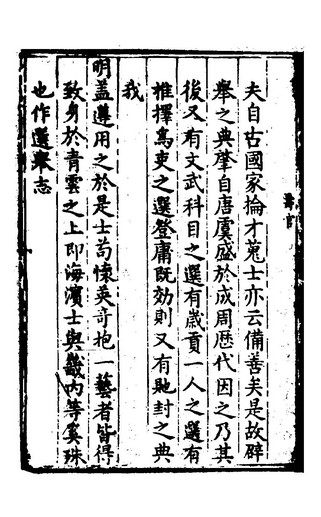 壽官
夫自古國家掄才蒐士亦云備善矣是故辟
舉之典肇自唐虞盛於成周歷代因之乃其
後又有文武科目之選有歲貢一人之選有
推擇爲吏之選登庸既効則又有貤封之典
我
明盖遵用之於是士苟懷英奇抱一藝者皆得
致身於青雲之上即海濱士與畿内等奚殊
也作選舉志